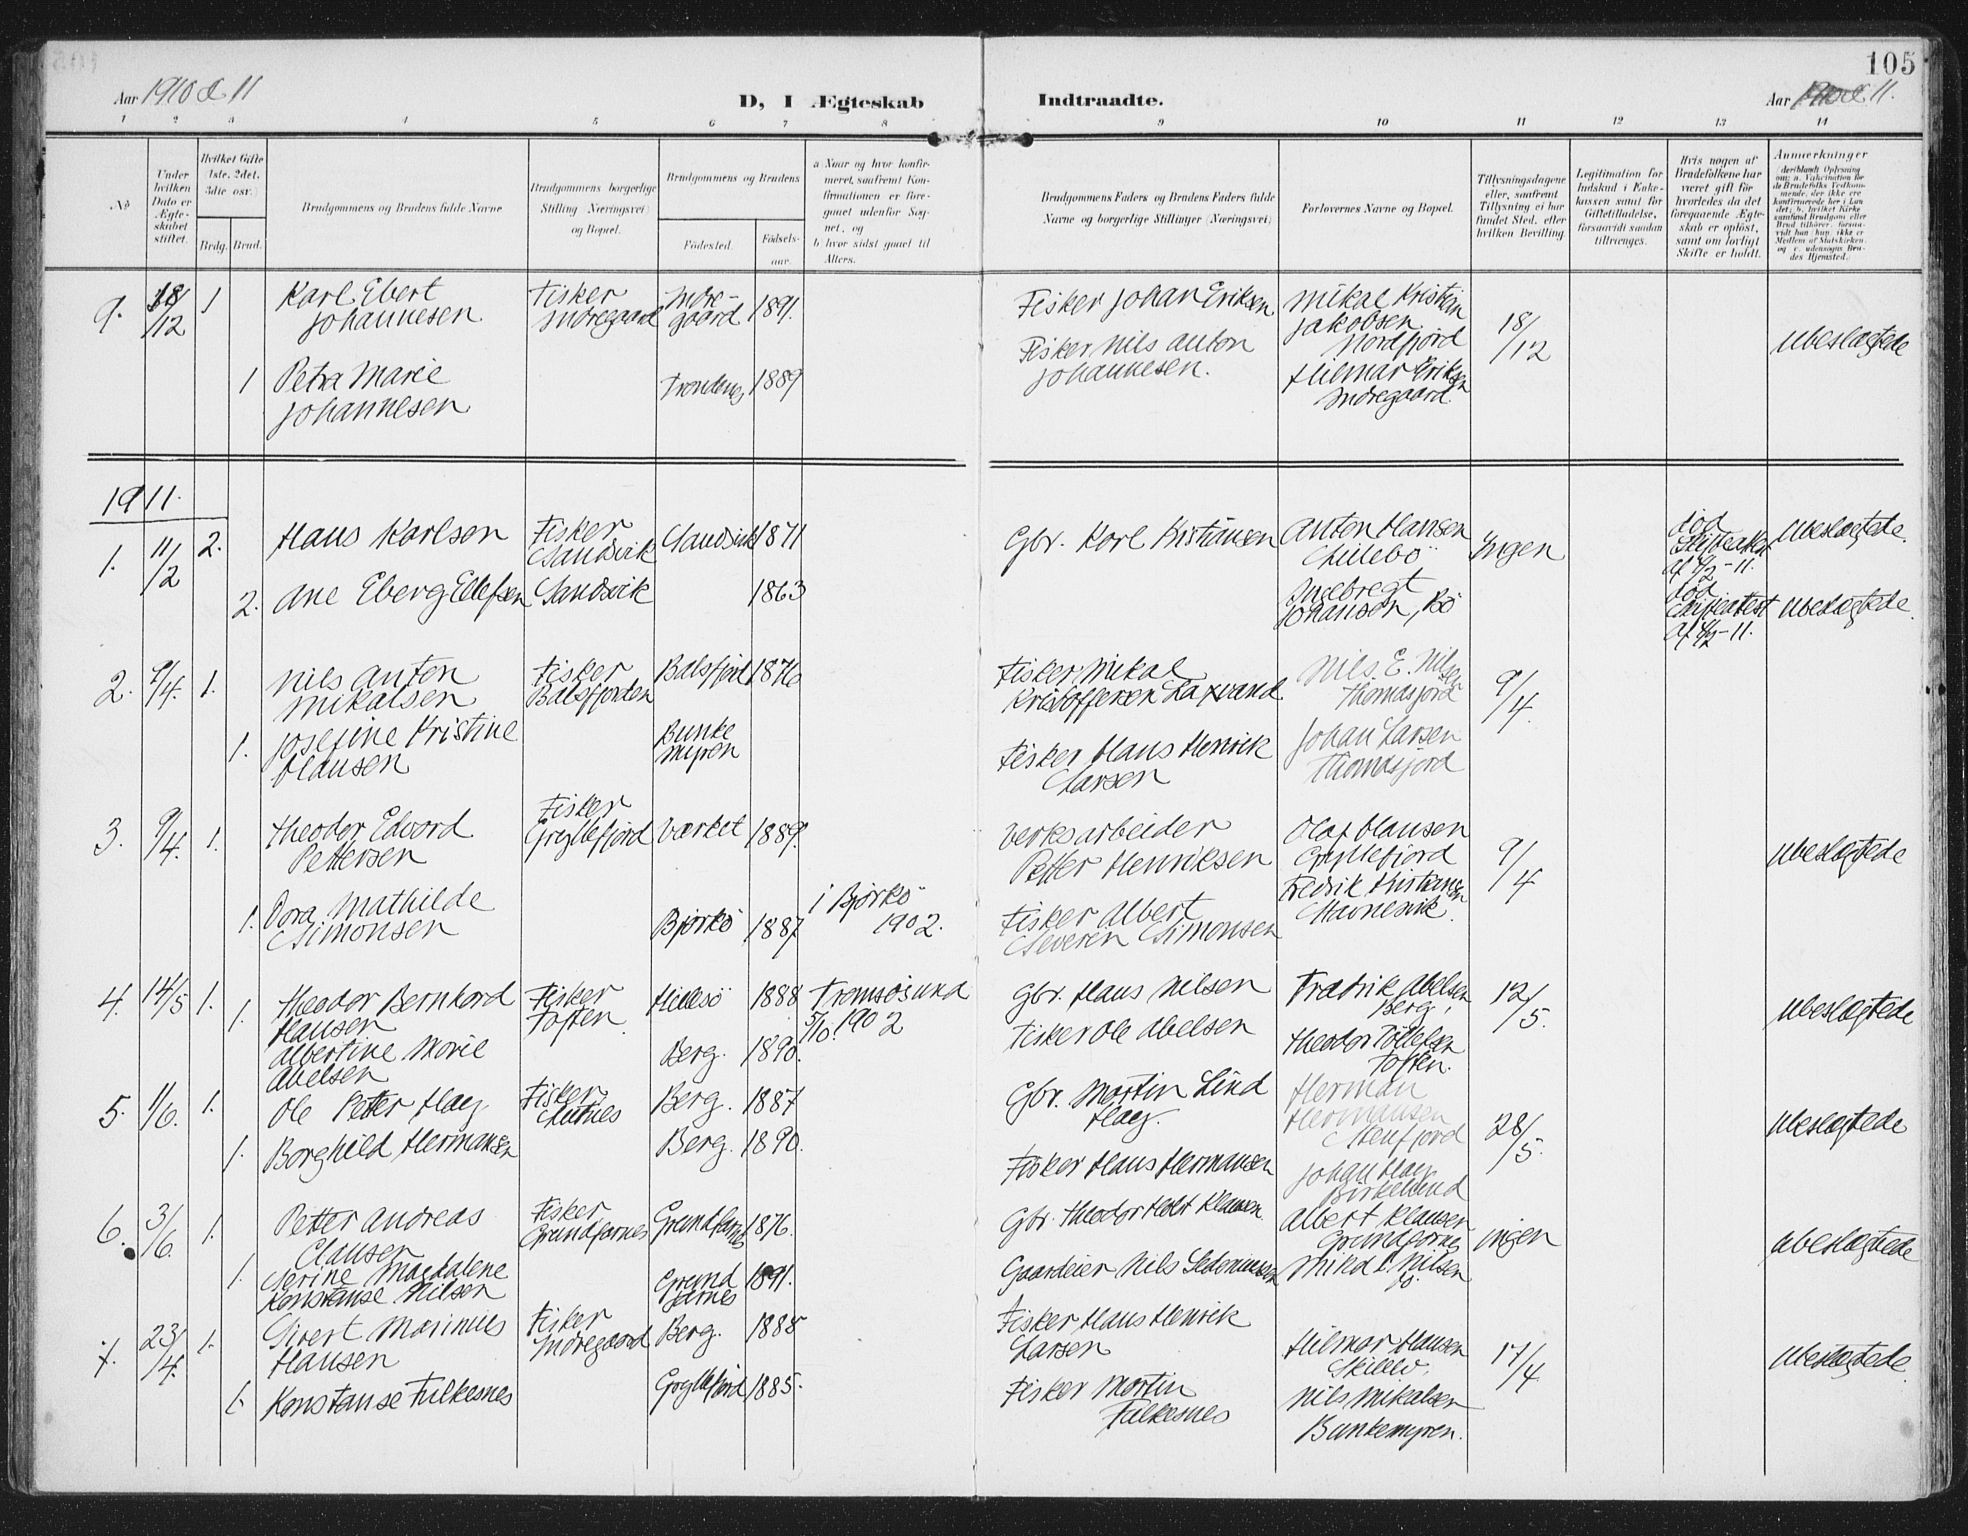 105
Aar 1910 & 11
D, I Ægteskab
Indtraadte.
Aar 1910 & 11.
1 2 3 4 5 6 7 8 9 10 11 12 13 14
No
Under hvilken Dato er Ægteskabet stiftet.
Hvilket Gifte (1ste, 2det, 3die osv.)
Brdg. Brud.
Brudgommens og Brudens fulde Navne
Brudgommens borgerlige Stilling (Næringsvei) og Bopæl.
Brudgommens og Brudens
Fødested.
Fødsels-aar.
a. Naar og hvor konfirmeret, saafremt Konfirmationen er foregaaet udenfor Sognet, og
b. hvor sidst gaaet til Alters.
Brudgommens Faders og Brudens Faders fulde Navne og borgerlige Stillinger (Næringsvei)
Forlovernes Navne og Bopæl.
Tillysningsdagene eller, saafremt Tillysning ei har fundet Sted, efter hvilken Bevilling.
Legitimation for Indskud i Enkekassen samt for Giftetilladelse, forsaavidt saadan tiltrænges.
Hvis nogen af Brudefolkene har været gift før hvorledes da det foregaaende Ægteskab er opløst, samt om lovligt Skifte er holdt.
Anmerkninger
9. 18/12 1 Karl Ebert Johannesen Fisker Indregaard Indregaard 1891.
Fisker Johan Eriksen Mikal Kristian Jakobsen Nordfjord 18/12 Ubeslægtede
1 Petra Marie Johannesen Trondenes 1889
Fisker Nils Anton Johannesen. Hilmar Eriksen Indregaard.
1911.
1. 11/2 2. Hans Karlsen Fisker Sandvik Sandvik 1871
Gbr. Karl Kristiansen Anton Hansen Lillebö Ingen død Skifteattest af 4/2-11. Ubeslægtede.
2. Ane Eberg Ellefsen Sandvik 1863
Ingebregt Johansen, Bö død Skifteattest af 4/2-11. Ubeslægtede.
2. 9/4. 1. Nils Anton Mikalsen Fisker Balsfjorden Balsfjord 1876
Fisker Mikal Kristoffersen Laxvand Nils E. Nilsen Thomasjord 9/4.
1. Josefine Kristine Hansen Bunkemyren
Fisker Hans Henrik Larsen Johan Larsen Thomasjord
3. 9/4. 1. Theodor Edvard Pettersen Fisker Gryllefjord Værket 1889.
Verksarbeider Petter Henriksen Olaf Hansen Gryllefjord 9/4 Ubeslægtede
1. Dora Mathilde Simonsen Bjorkö 1887 i Bjørkö 1902.
Fisker Albert Severin Simonsen Fredrik Kristiansen Stavnesvik.
4. 14/5 1. Theodor Bernhard Hansen Fisker Toften. Hillesö 1888 Tromsøsund 5/10. 1902
Gbr. Hans Nilsen Fredrik Abelsen Berg. 12/5. Ubeslægtede
1. Albertine Marie Abelsen Berg. 1890.
Fisker Ole Abelsen Theodor Tollefsen Toften.
5. 1/6. 1. Ole Petter Hay Fisker, Lutnes Berg. 1887
Gbr. Martin Lind Hay. Herman Hermansen Stenfjord 28/5. Ubeslægtede
1. Borghild Hermansen Berg. 1890.
Fisker Hans Hermansen Johan Hay Birkelund
6. 3/6. 1. Petter Andreas Clausen Fisker Grundfarnes Grundfarnes 1876.
Gbr. Theodor Holst Klausen. Albert Klausen Grundfarnes ingen Ubeslægtede
1. Serine Magdalene Konstanse Nilsen Grundfarnes 1891.
Gaardeier Nils Sedeniussen Mikal Nilsen do.
7. 23/4. 1. Sivert Marinius Hansen Fisker Indregaard Berg. 1888
Fisker Hans Henrik Larsen Hilmar Hansen 17/4 Ubeslægtede.
1. Konstanse Falkesnes Gryllefjord 1885.
Fisker Martin Falkesnes Nils Mikalsen Bunkemyren.